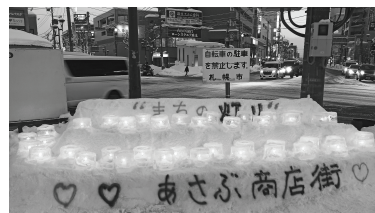 自転車の駐車
を禁止します
札幌市
“まちの灯り”
♡ ♥ あさぶ商店街 ♡